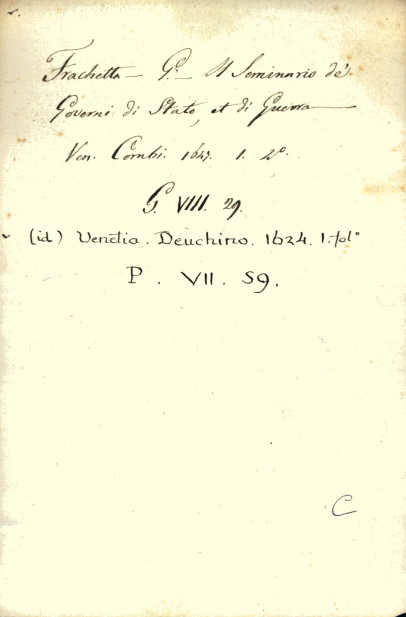 Frachetta — G.° Il Seminario de'
Governi di Stato, et di Guerra —
Ven. Combi. 1647. 1. 2°.
G. VIII. 29.
(id) Venetia. Deuchino. 1624. 1. fol°
P. VII. 59.
C